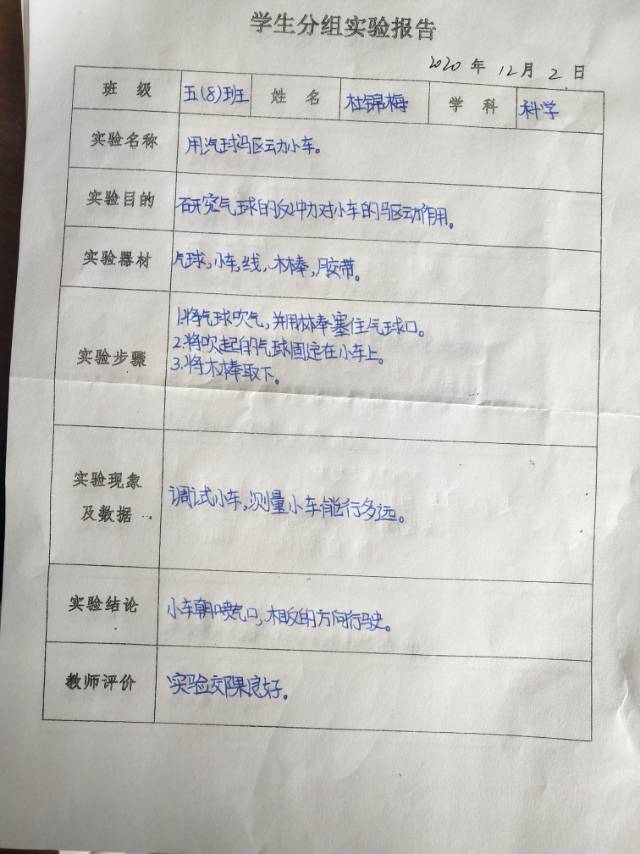 学生分组实验报告
2020 年 12 月 2 日
班 级 五(8)班 姓 名 杜锦梅 学 科 科学
实验名称 用汽球驱动小车。
实验目的 研究气球的反冲力对小车的驱动作用。
实验器材 气球,小车,线,木棒,胶带。
实验步骤
1.将气球吹气,并用木棒塞住气球口。
2.将吹起的气球固定在小车上。
3.将木棒取下。
实验现象
及数据
调试小车,测量小车能行多远。
实验结论 小车朝喷气口,相反的方向行驶。
教师评价 实验效果良好。